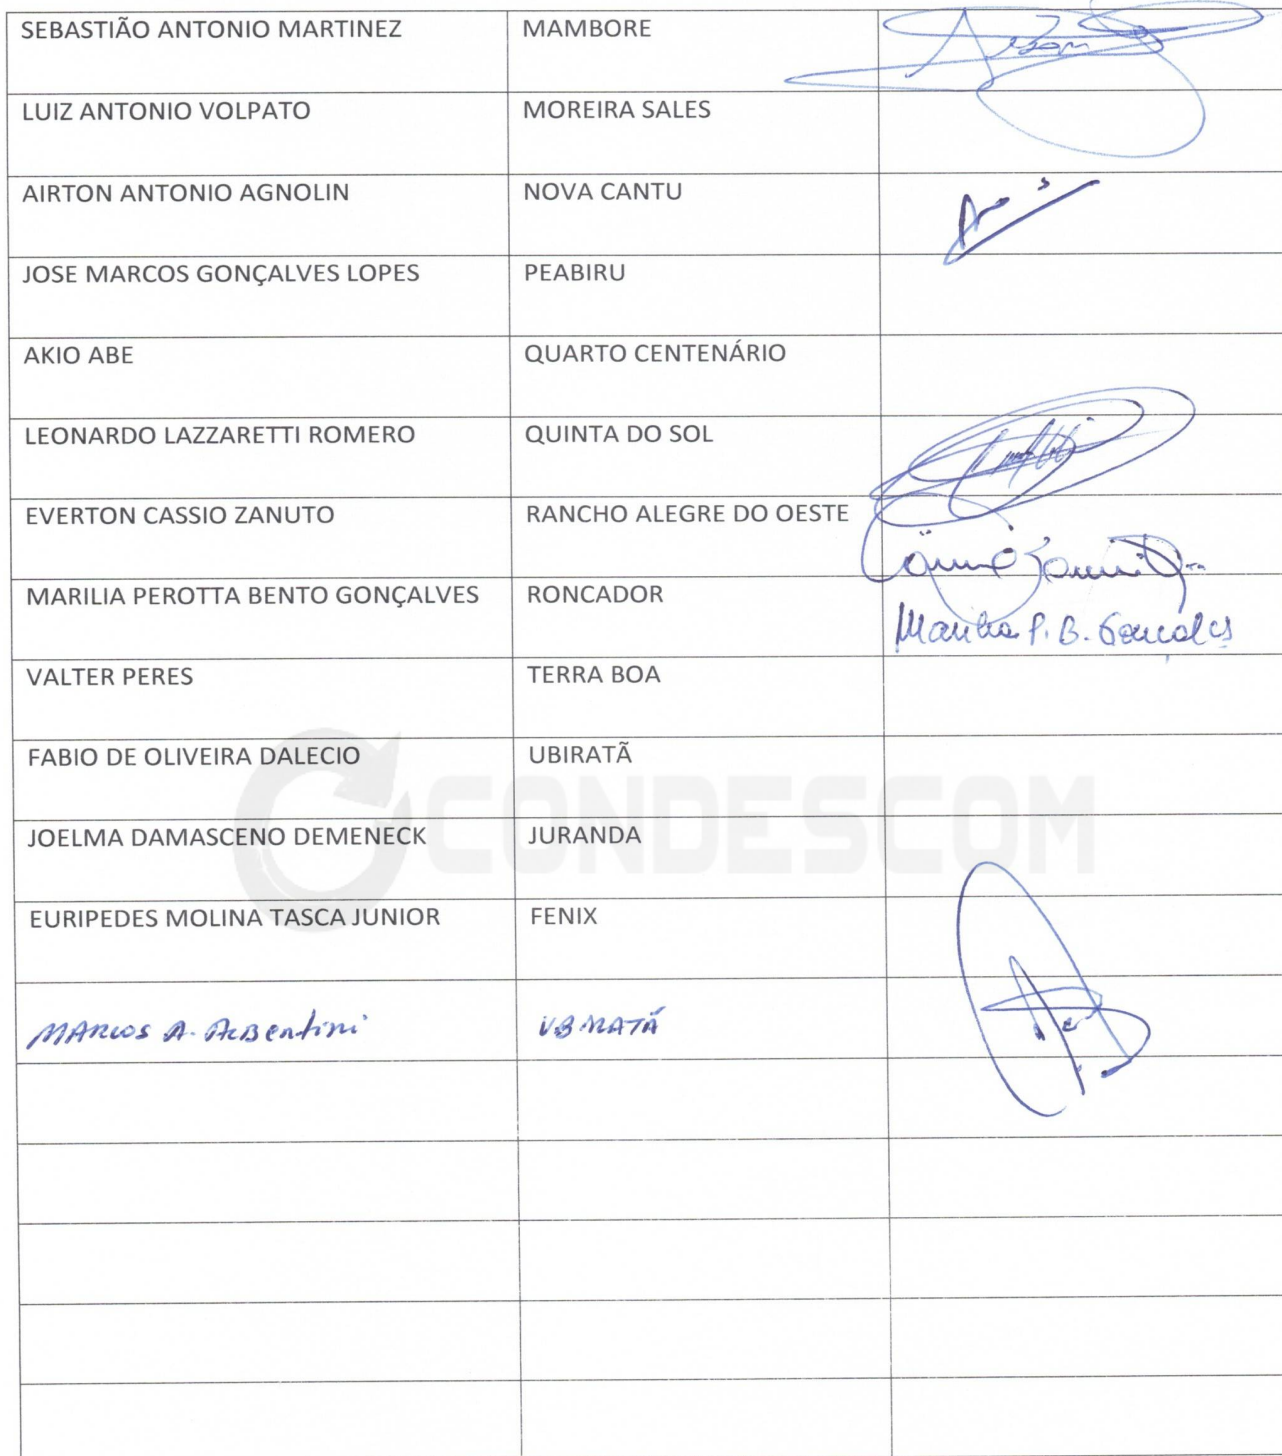 SEBASTIÃO ANTONIO MARTINEZ MAMBORE
LUIZ ANTONIO VOLPATO MOREIRA SALES
AIRTON ANTONIO AGNOLIN NOVA CANTU
JOSE MARCOS GONÇALVES LOPES PEABIRU
AKIO ABE QUARTO CENTENÁRIO
LEONARDO LAZZARETTI ROMERO QUINTA DO SOL
EVERTON CASSIO ZANUTO RANCHO ALEGRE DO OESTE
MARILIA PEROTTA BENTO GONÇALVES RONCADOR Marilia P. B. Gonçalves
VALTER PERES TERRA BOA
FABIO DE OLIVEIRA DALECIO UBIRATÃ
CONDESCOM
JOELMA DAMASCENO DEMENECK JURANDA
EURIPEDES MOLINA TASCA JUNIOR FENIX
MARCOS A. UBIRATÃ